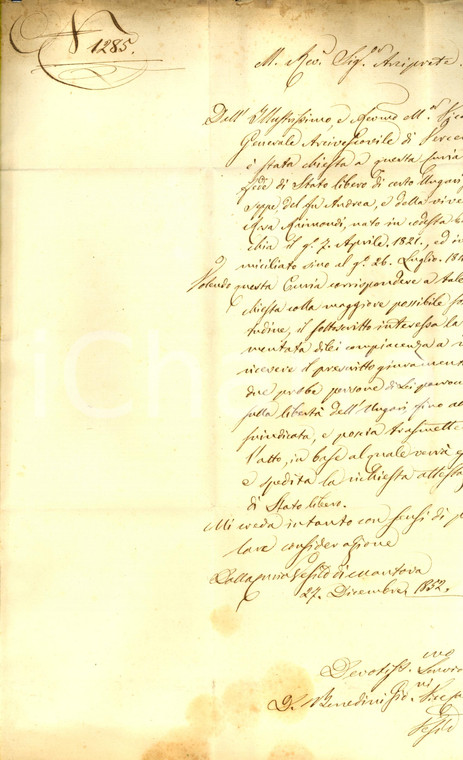 N° 1285.
M. Rev. Sig.r Arciprete.
Dall' Illustrissimo, e Revmo M.r Vica
Generale Arcivescovile di Vercel
è stata chiesta a questa Curia
fede di Stato libero di certo Ungari
seppe del fu Andrea, e della vive
Rosa Raimondi, nato in codesta
chia il g.o 7. Aprile. 1821., ed
miciliato sino al g.o 26. Luglio. 184
Volendo questa Curia corrispondere a tale
chiesta colla maggiore possibile
tudine, il sottoscritto interessa la
mentata di lei compiacenza a
ricevere il prescritto giuramen
due probe persone di Lei parroc
sulla libertà dell' Ungari sino al
indicata, e poscia trasmette
l'atto, in base al quale verrà
e spedita la richiesta attesta
di Stato libero.
Mi creda intanto con sensi di
lare considerazione
Dalla Curia Vesc.le di Mantova
27. Dicembre, 1852.
Devotiss.mo Servo
D. Benedini Gio.